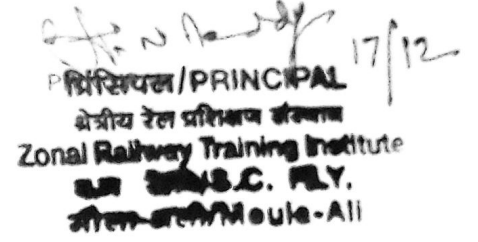 17/12
प्रिंसिपल/PRINCIPAL
क्षेत्रीय रेल प्रशिक्षण संस्थान
Zonal Railway Training Institute
S.C. RLY.
मौला-अली/Moula-Ali